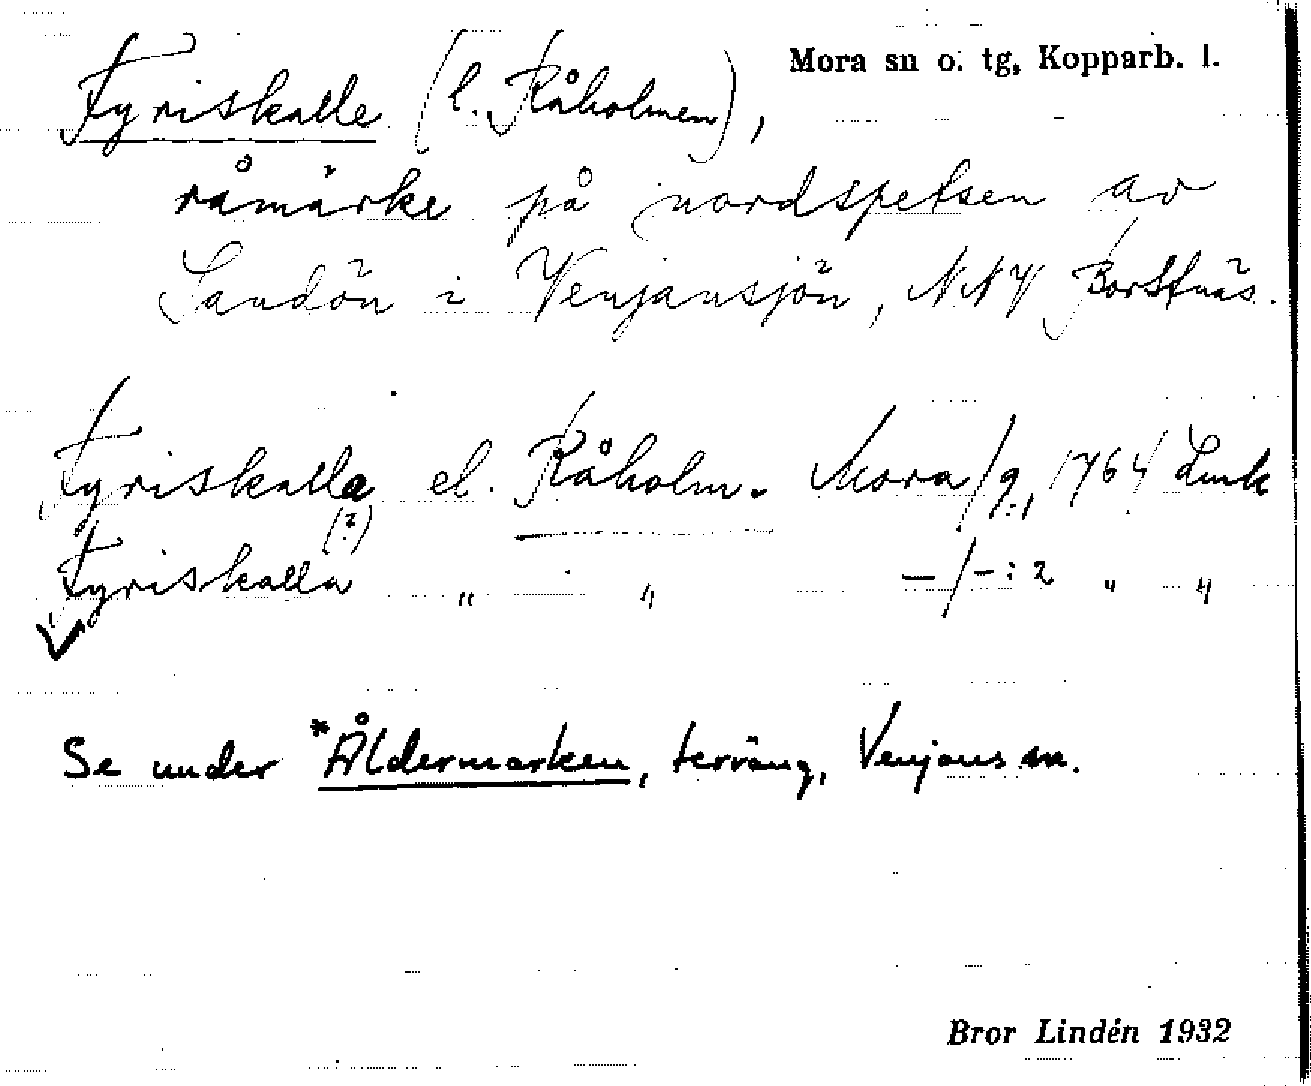 Mora sn o. tg, Kopparb. l.
Fyriskalle (l. Råholmen),
råmärke på nordspetsen av
Sandön i Venjansjön, NNV Borstnäs.
Fyriskalla el. Råholm. Mora/9:1 1764 Lmk
(?)
Fyriskalla " " —/–:2 " "
Se under *Åldermarken, terräng, Venjans sn.
Bror Lindén 1932